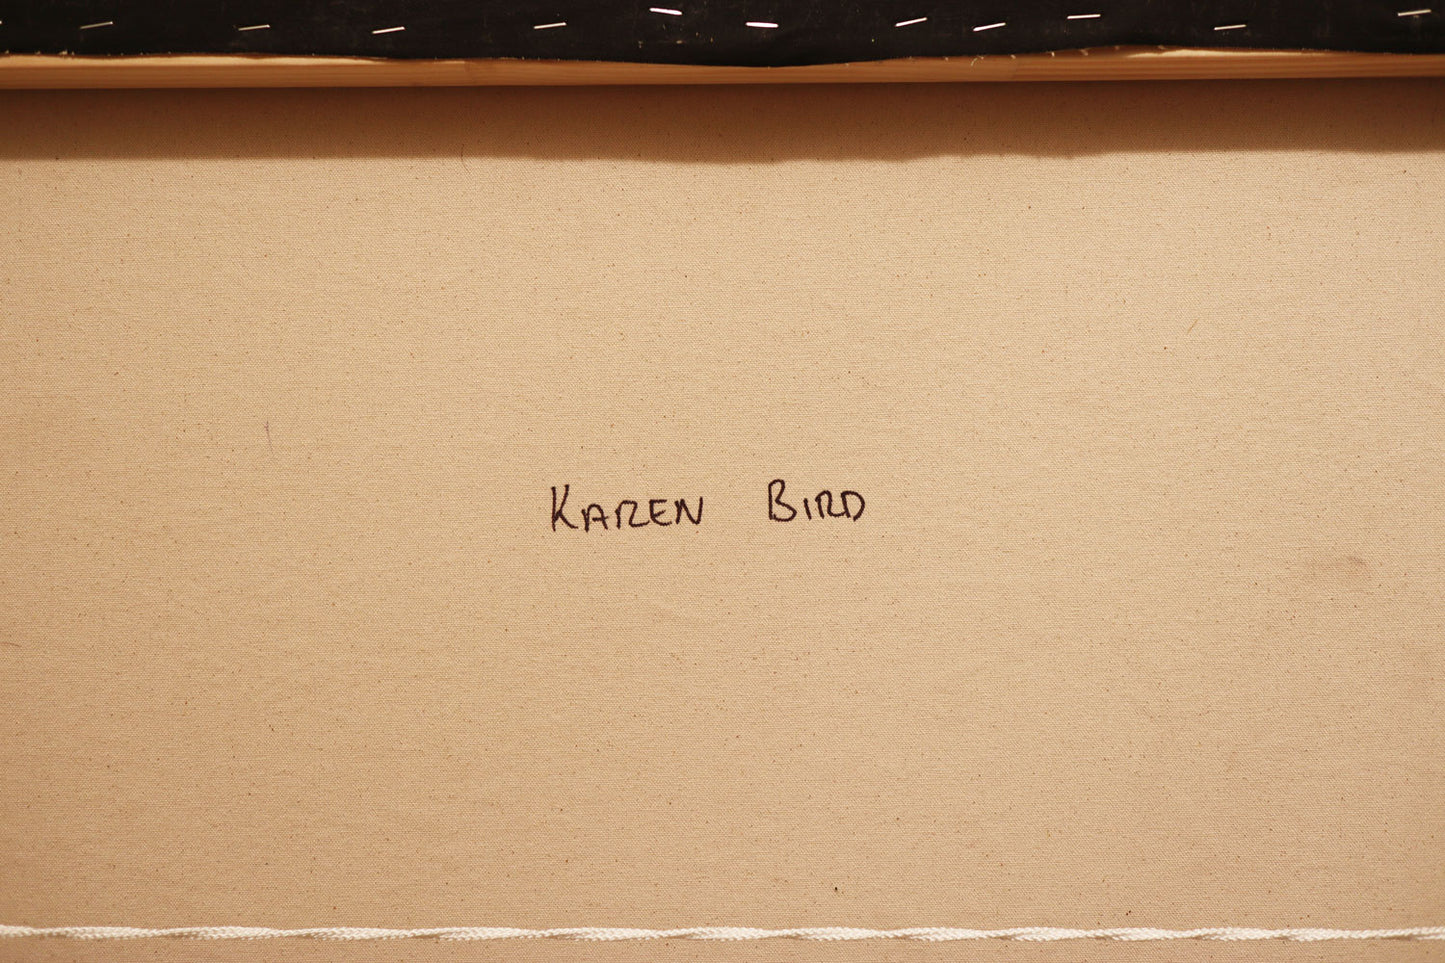 KAREN BIRD